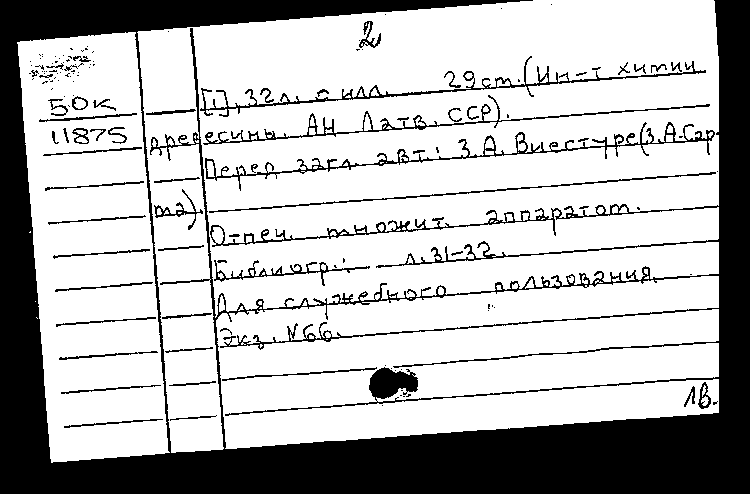 2
[1], 32 л. с илл. 29 ст. (Ин-т химии
50к
11875
древесины. АН Латв. ССР).
Перед загл. авт.: З.А. Виестуре (З.А. Сар-
та).
Отпеч. множит. аппаратом.
Библиогр.: л. 31-32.
Для служебного пользования.
Экз. №66.
1в.